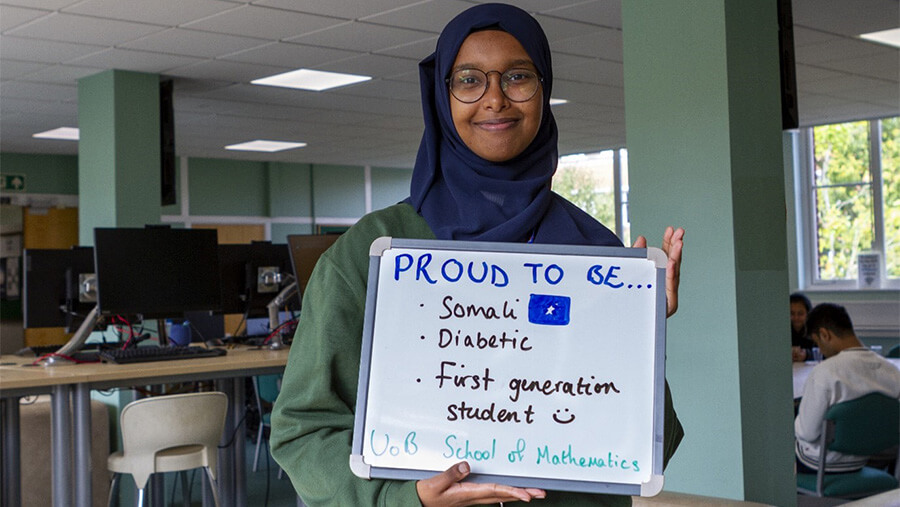 PROUD TO BE...
· Somali
· Diabetic
· First generation
student
UoB School of Mathematics